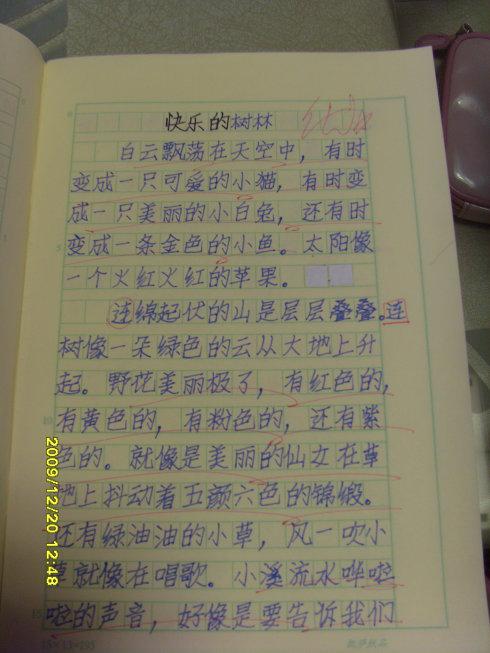 快乐的树林
白云飘荡在天空中，有时
变成一只可爱的小猫，有时变
成一只美丽的小白兔，还有时
变成一条金色的小鱼。太阳像
一个火红火红的苹果。
连绵起伏的山是层层叠叠。连
树像一朵绿色的云从大地上升
起。野花美丽极了，有红色的，
有黄色的，有粉色的，还有紫
色的。就像是美丽的仙女在草
地上抖动着五颜六色的锦缎。
还有绿油油的小草，风一吹小
草就像在唱歌。小溪流水哗啦
啦的声音，好像是要告诉我们
15×17=255
2009/12/20 12:48